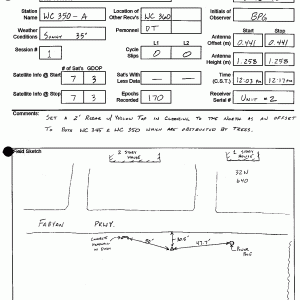 Station Name WC 350-A Location of Other Recv's WC 360 Initials of Observer BPG
Weather Conditions Sunny 35° Personnel DT Start Stop
Antenna Offset (m) 0.441 0.441
Session # 1 Cycle Slips L1 L2 0 0 Antenna Height (m) 1.258 1.258
# of Sat's GDOP
Satellite Info @ Start 7 3 Sat's With Less Data - - Time (C.S.T.) 12:03 PM 12:17 PM
Satellite Info @ Stop 7 3 Epochs Recorded 170 Receiver Serial # Unit #2
Comments: Set a 2' Rebar w/ Yellow Cap in Clearing to the North as an Offset
to Both WC 345 & WC 350 which are obstructed by trees.
Field Sketch
2 Story House
2 Story House
32W
640
Fabyan Pkwy.
30.5'
47.7'
Power Pole